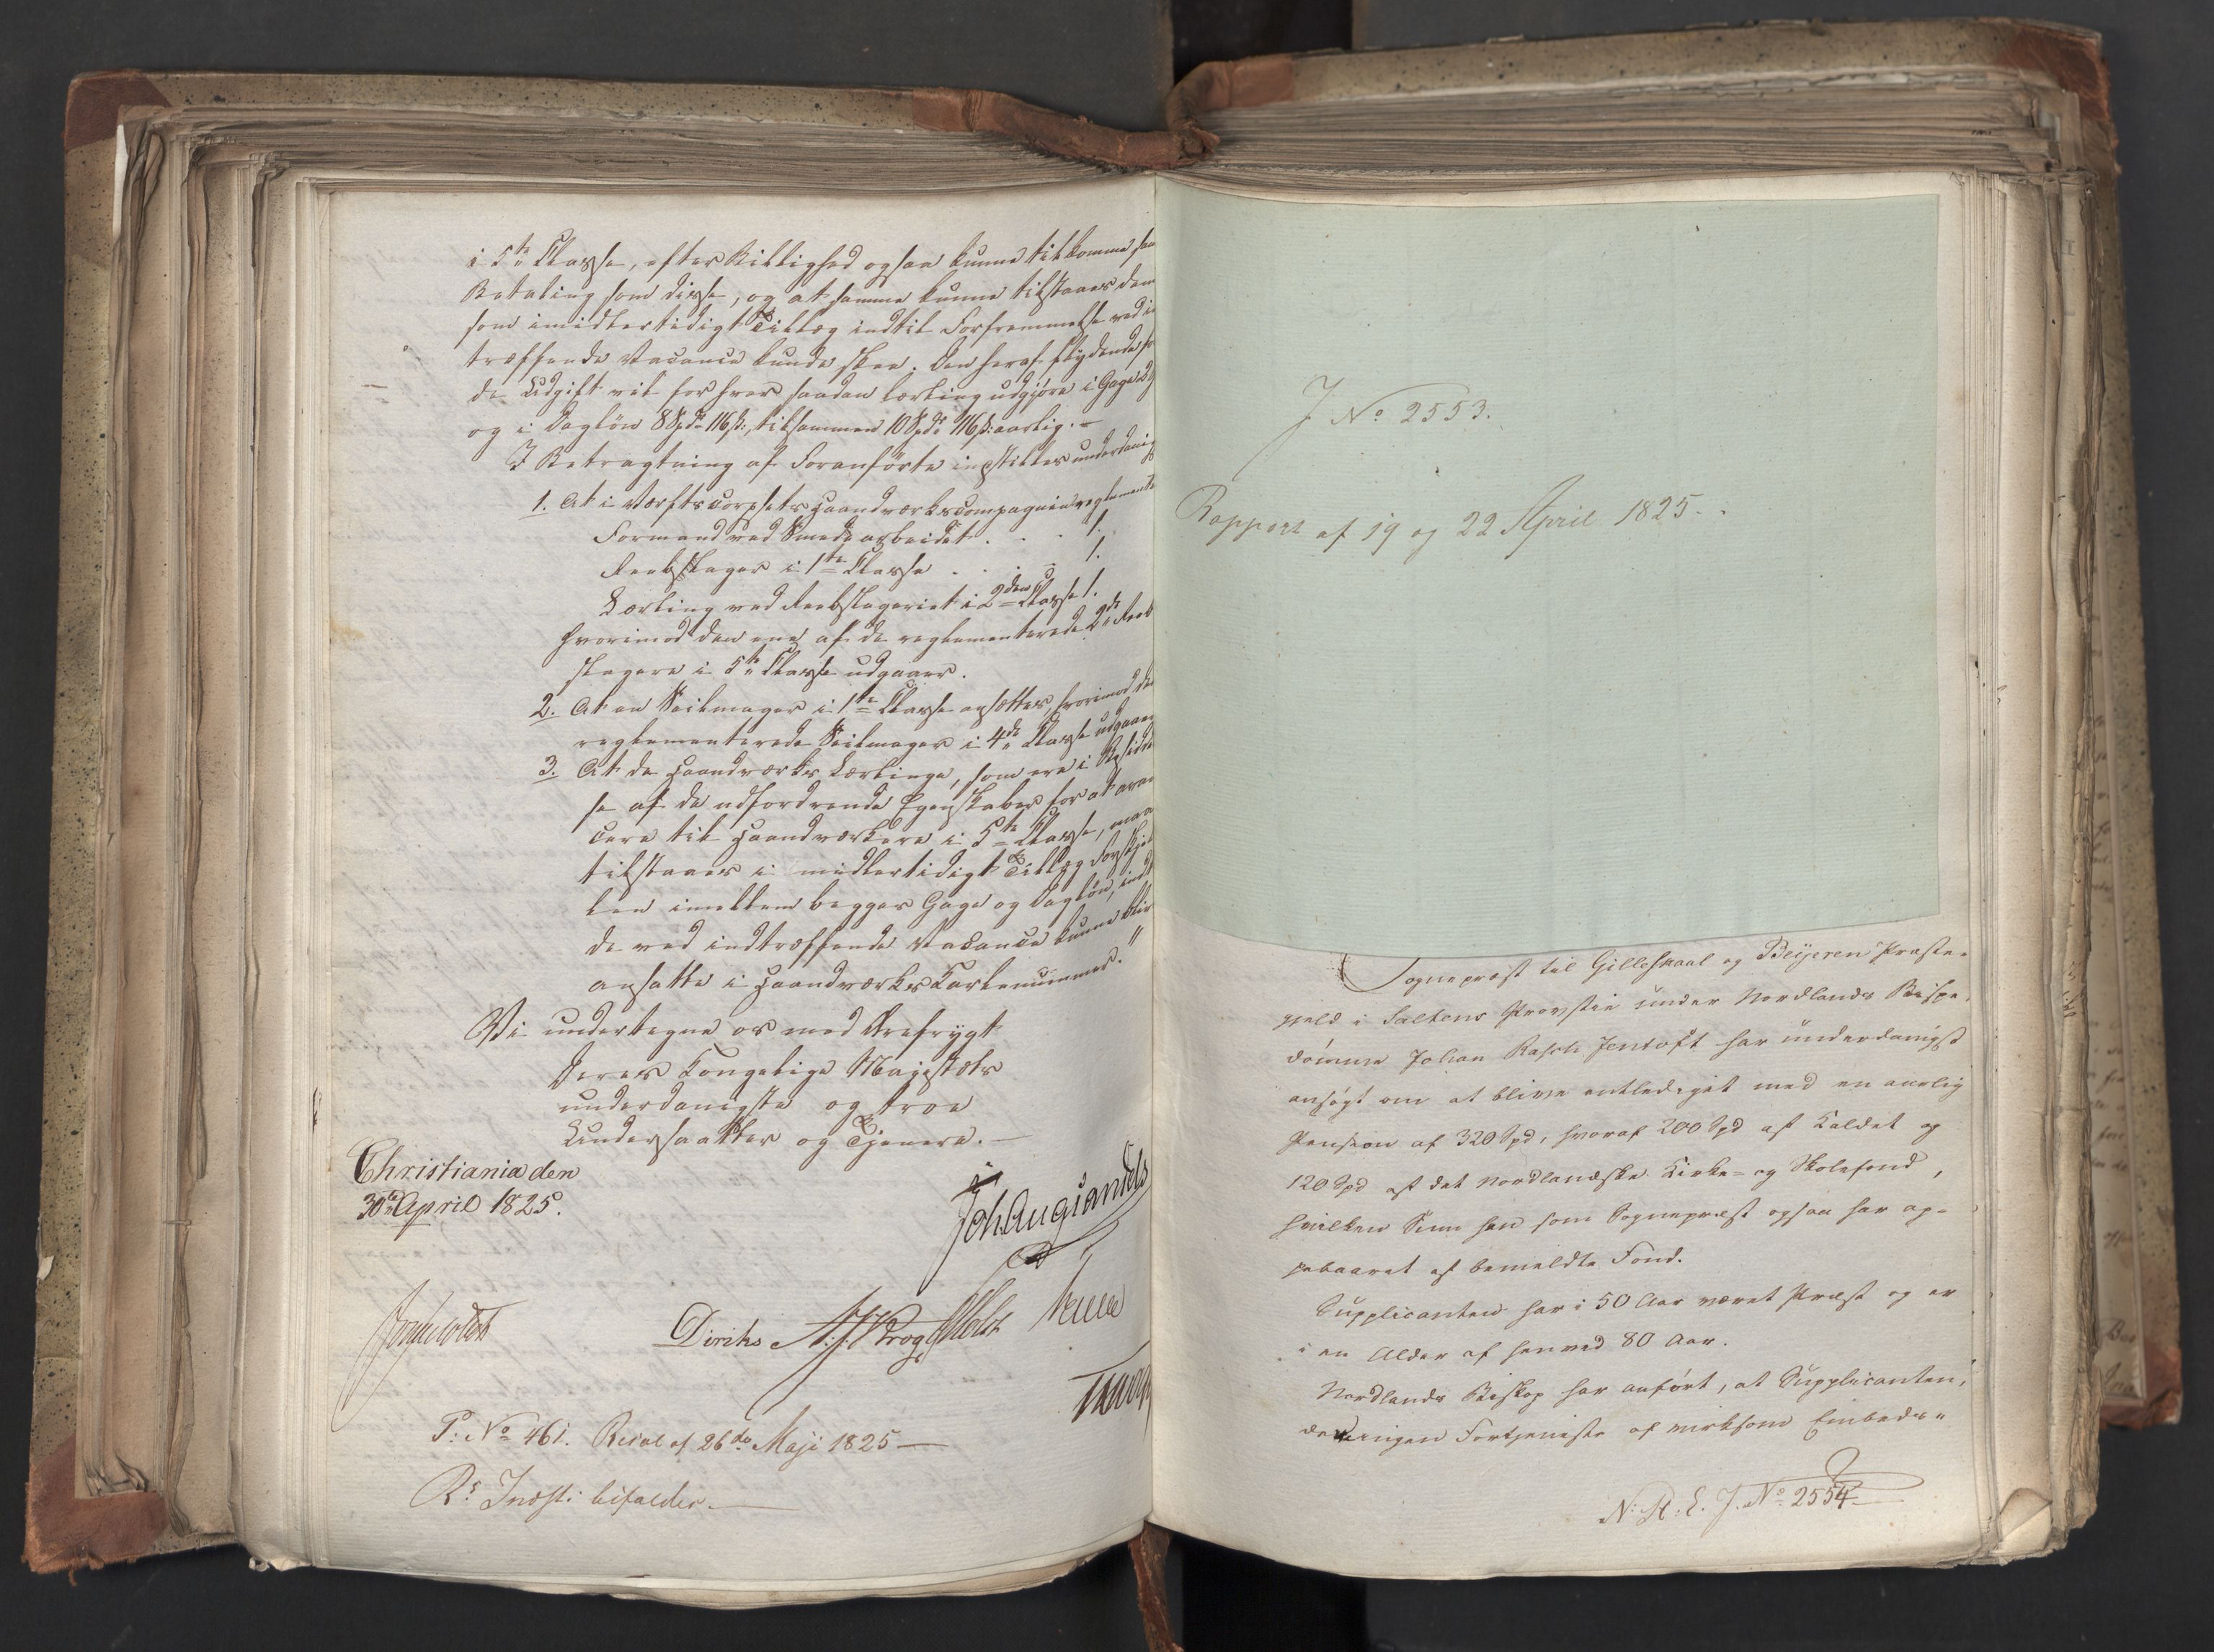 i 5te Classe, efter Billighed ogsaa kunne tilkomme
Betaling som disse, og at samme kunne tilstaaes dem
som imidlertidigt Tillæg indtil Forfremmelse ved
træffende Vacance kunde skee. Den heraf flydende
de Udgift vil for hver saadan Lærling udgjøre i Gage
og i Dagløn 8 Spd. 116 s:, tilsammen 10 Spd. 116 s. aarlig.-
I Betragtning af Foranførte indstilles underdanigst
1. At i Værftscorpsets Haandværkscompagnie reglementeres
Formand ved Smedearbeidet . . . 1.
Reebslager i 1ste Classe . . . 1.
Lærling ved Reebslageriet i 2den Classe 1.
hvorimod den ene af de reglementerede 2de Reeb
slagere i 5te Classe udgaaer.
2. At en Seilmager i 1ste Classe ansættes, hvorimod den
reglementerede Seilmager i 4de Classe udgaaer
3. At de Haandværks Lærlinge, som ere i Besiddel
se af de udfordrende Egenskaber for at avan
cere til Haandværkere i 5te Classe, maae
tilstaaes i midlertidigt Tillæg Forskjel
len imellem begges Gage og Dagløn, indtil
de ved indtræffende Vacance kunne blive
ansatte i Haandværks Karlenummer."
Vi undertegne os med Ærefrygt
Deres Kongelige Majestæts
underdanigste og troe
Undersaatter og Tjenere.-
Christiania den
30te April 1825.
Joh Aug Sandels
Diriks A. J. Krog
P: No 461. Resol af 26de Maji 1825-
Rs Indst: bifaldes.-
J No 2553.
Rapport af 19 og 22 April 1825.
Sognepræst til Gilleskaal og Beijeren Præste-
gjeld i Saltens Provstie under Nordlands Bispe-
dømme Johan Rasch Jentoft har underdanigst
ansøgt om at blive entlediget med en aarlig
Pension af 320 Spd, hvoraf 200 Spd af Kaldet og
120 Spd af det Nordlandske Kirke- og Skolefond,
hvilken Sum han som Sognepræst ogsaa har op-
pebaaret af bemeldte Fond.
Supplicanten har i 50 Aar været Præst og er
i en Alder af henved 80 Aar.
Nordlands Biskop har anført, at Supplicanten,
der ingen Fortjeneste af virksom Embeds-
N: R: E. J. No 2554